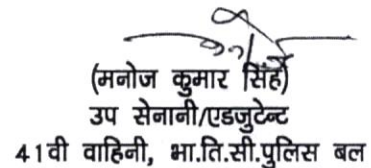 (मनोज कुमार सिंह)
उप सेनानी/एडजुटेन्ट
41वी वाहिनी, भा.ति.सी.पुलिस बल